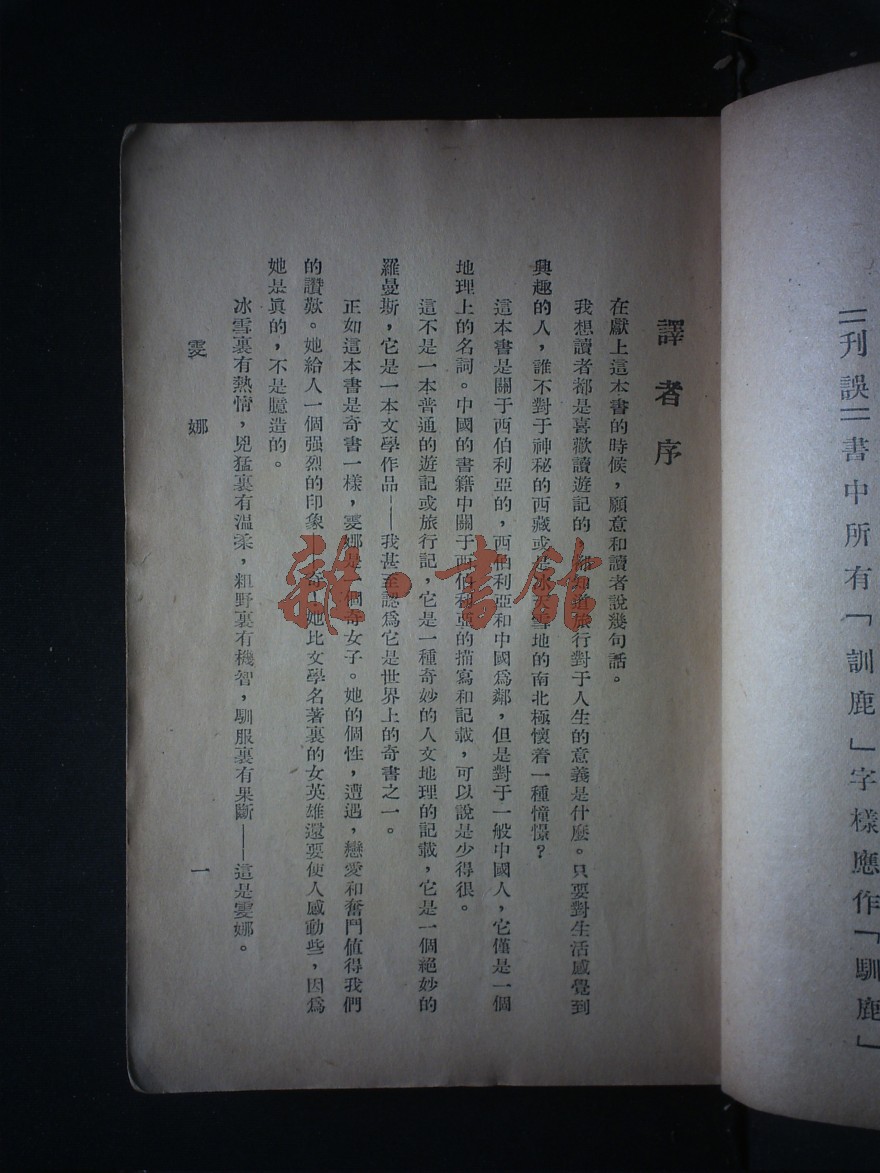 〓刊誤〓書中所有「訓鹿」字樣應作「馴鹿」
譯者序
在獻上這本書的時候，願意和讀者說幾句話。
我想讀者都是喜歡讀遊記的，都知道旅行對于人生的意義是什麼。只要對生活感覺到
興趣的人，誰不對于神秘的西藏或是冰天雪地的南北極懷着一種憧憬？
這本書是關于西伯利亞的，西伯利亞和中國爲鄰，但是對于一般中國人，它僅是一個
地理上的名詞。中國的書籍中關于西伯利亞的描寫和記載，可以說是少得很。
這不是一本普通的遊記或旅行記，它是一種奇妙的人文地理的記載，它是一個絕妙的
羅曼斯，它是一本文學作品——我甚至認爲它是世界上的奇書之一。
正如這本書是奇書一樣，雯娜是一個奇女子。她的個性，遭遇，戀愛和奮鬥值得我們
的讚歎。她給人一個强烈的印象——奇！她比文學名著裏的女英雄還要使人感動些，因爲
她是眞的，不是臆造的。
冰雪裏有熱情，兇猛裏有溫柔，粗野裏有機智，馴服裏有果斷——這是雯娜。
雯娜
一
雜·書館